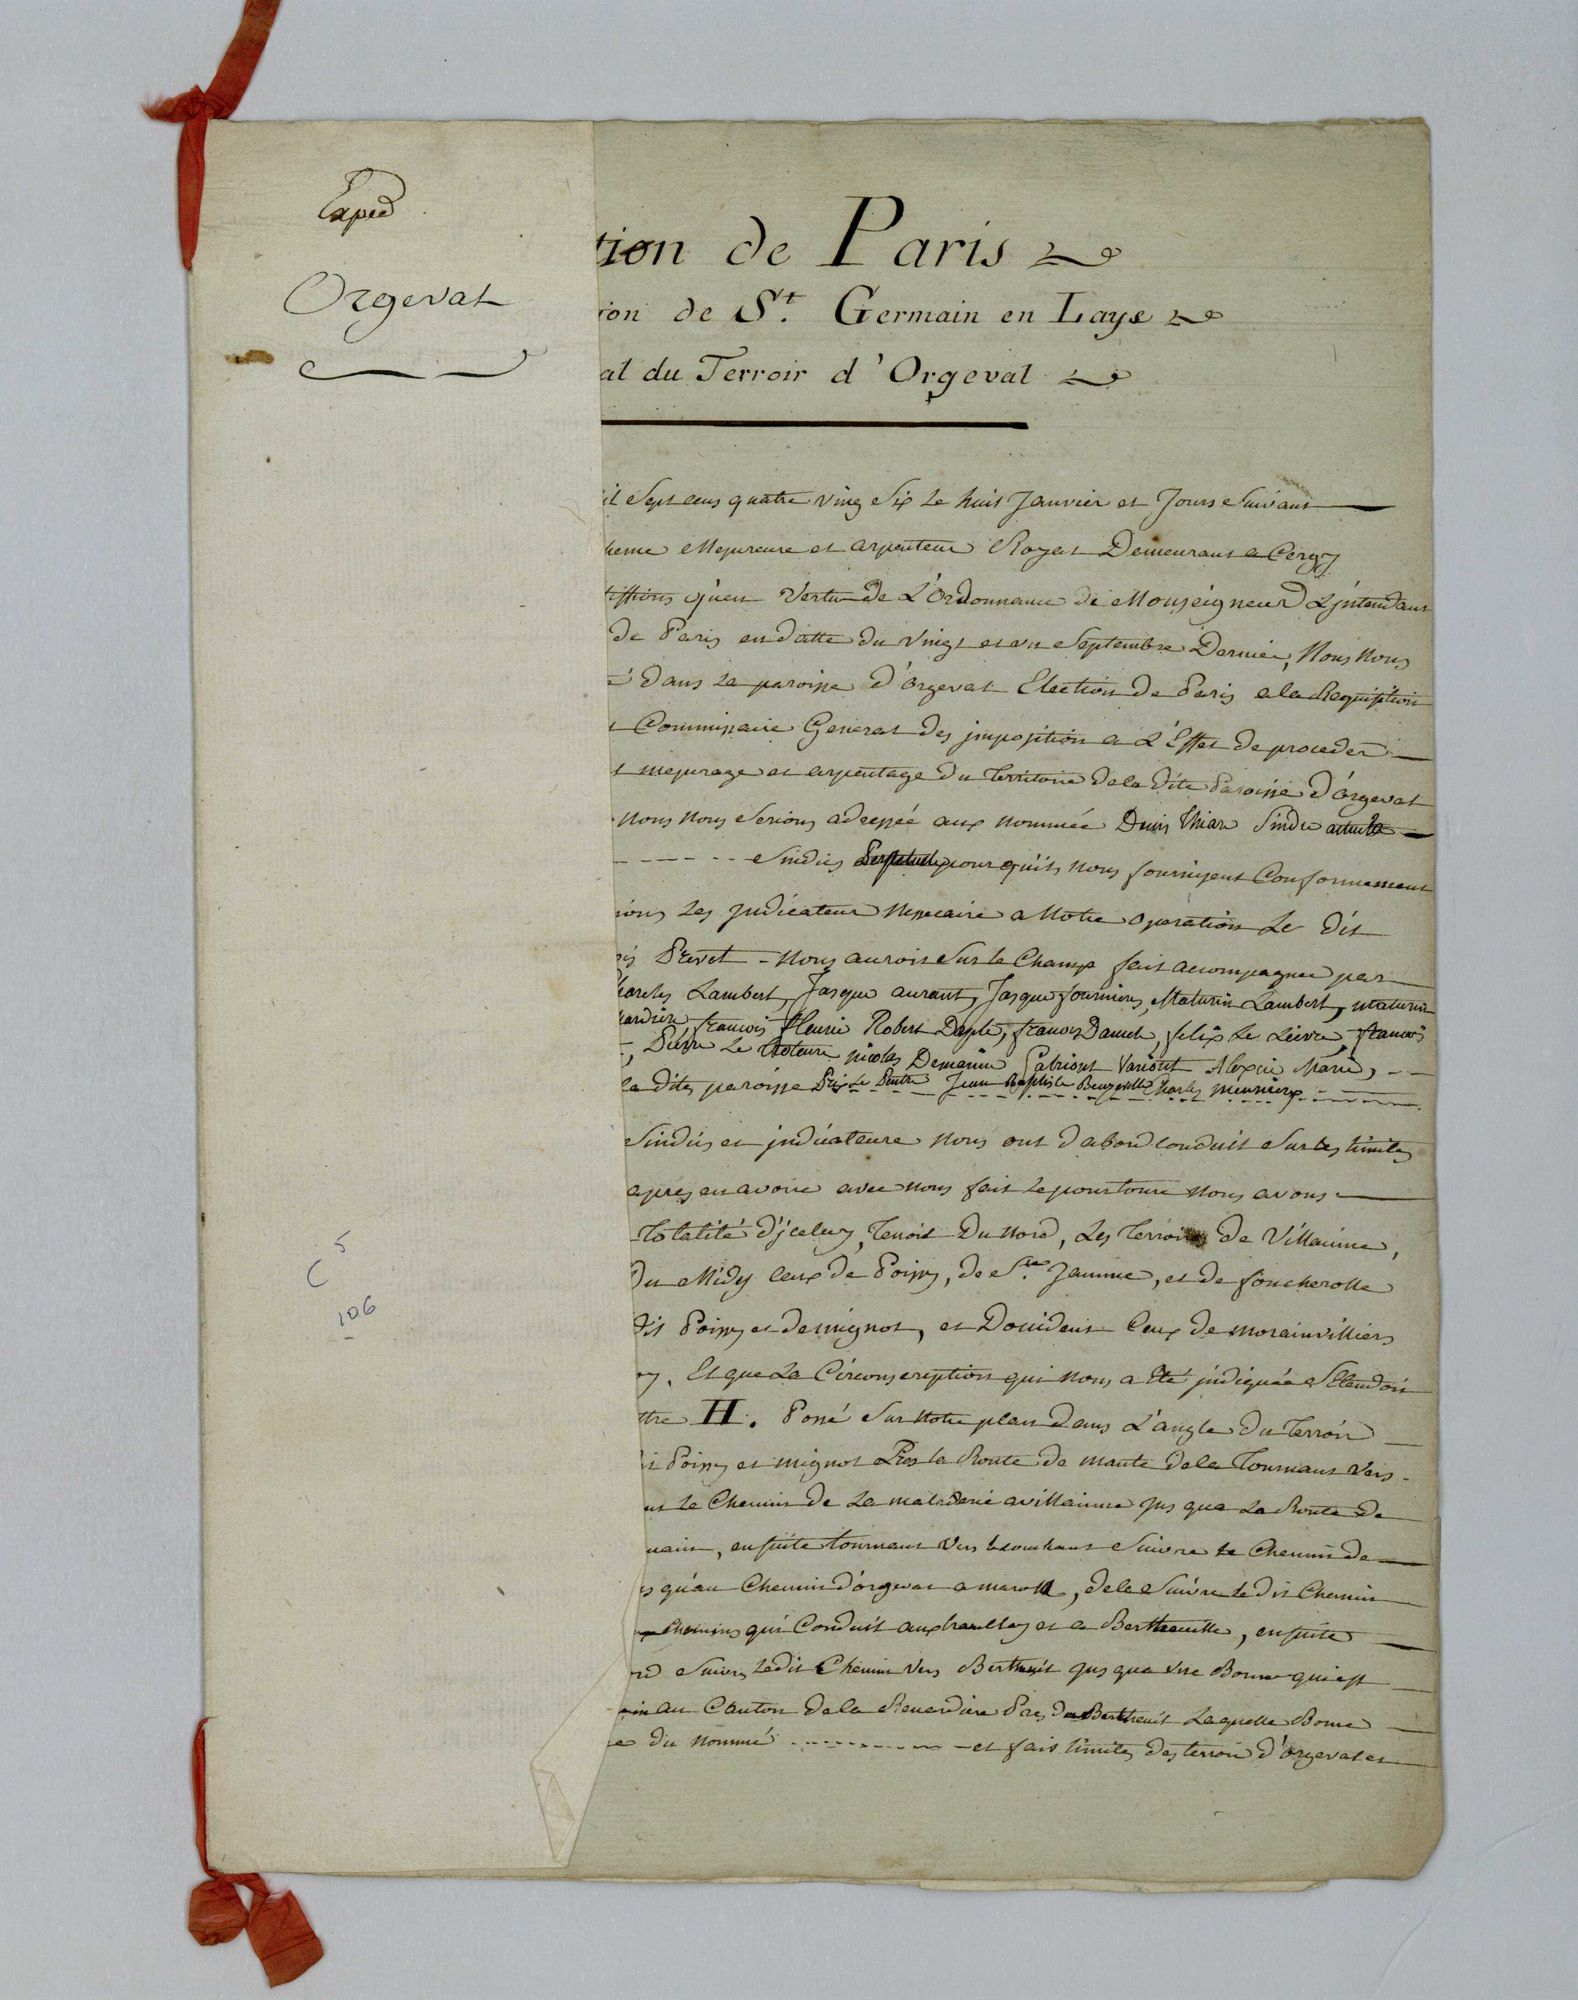 Exped
Orgeval
5
C
106
tion de Paris
ion de St. Germain en Laye
al du Terroir d'Orgeval
il Sept cens quatre ving Six Le huit Janvier et Jours Suivant
Mesureur et arpenteur Royal Demeurant a Cergy
qu'en Vertu de L'Ordonnance de Monseigneur L'jntendant
de Paris en datte du Vingt et un Septembre Dernier, Nous Nous
dans La paroisse d'orgeval Election de Paris a la Requisition
Commissaire General des jmposition a L'Effet de proceder
mesurage et arpentage du Territoire de la dite Paroisse d'orgeval
Nous Nous Serions adressée aux nommée Denis Sindic
Sindics pour qu'ils nous fournissent Conformement
Les jndicateur Nessecaire a Notre operation Le dit
Prevet - Nous auroit Sur le Champ fait accompagner par
harles Lambert, Jasque aurant, Jasque fournier, Maturin Lambert, maturin
francois fleurie Robert francois felix Le Lievre, francois
Pierre Le nicolas Alexis Marie,
La dite paroisse Jean Baptiste Charles meunier
Sindics et jndicateurs Nous ont dabord conduit Sur les limites
apres en avoire avec nous fait Le pourtour Nous avons
Totalité d'jceluy, Tenoit Du Nord, Les Terroirs de Villainne,
Du Midy Ceux de Poissy, de Ste. Jamme, et de foucherolle
Poissy et de mignot, et Doccident Ceux de morainvilliers
Et que La Circonscription qui Nous a Eté jndiquée Setendoit
ttre H. Possé Sur Notre plan Dans L'angle du Terroir
Poissy et mignot Pres la Route de mante de la Tournant Vers
Le Chemin de La maladerie a villainne jus qua La Route de
main, ensuite tournant Vers Le couchant Suivre le Chemin de
s qu'au Chemin d'orgeval a de la Suivre Le dit Chemin
Chemins qui Conduit et a ensuite
Suivre Ledit Chemin Vers jus qua Une Borne qui est
au Canton de la Pres Laquelle Borne
du nommé et fait limites des terroir d'orgeval et